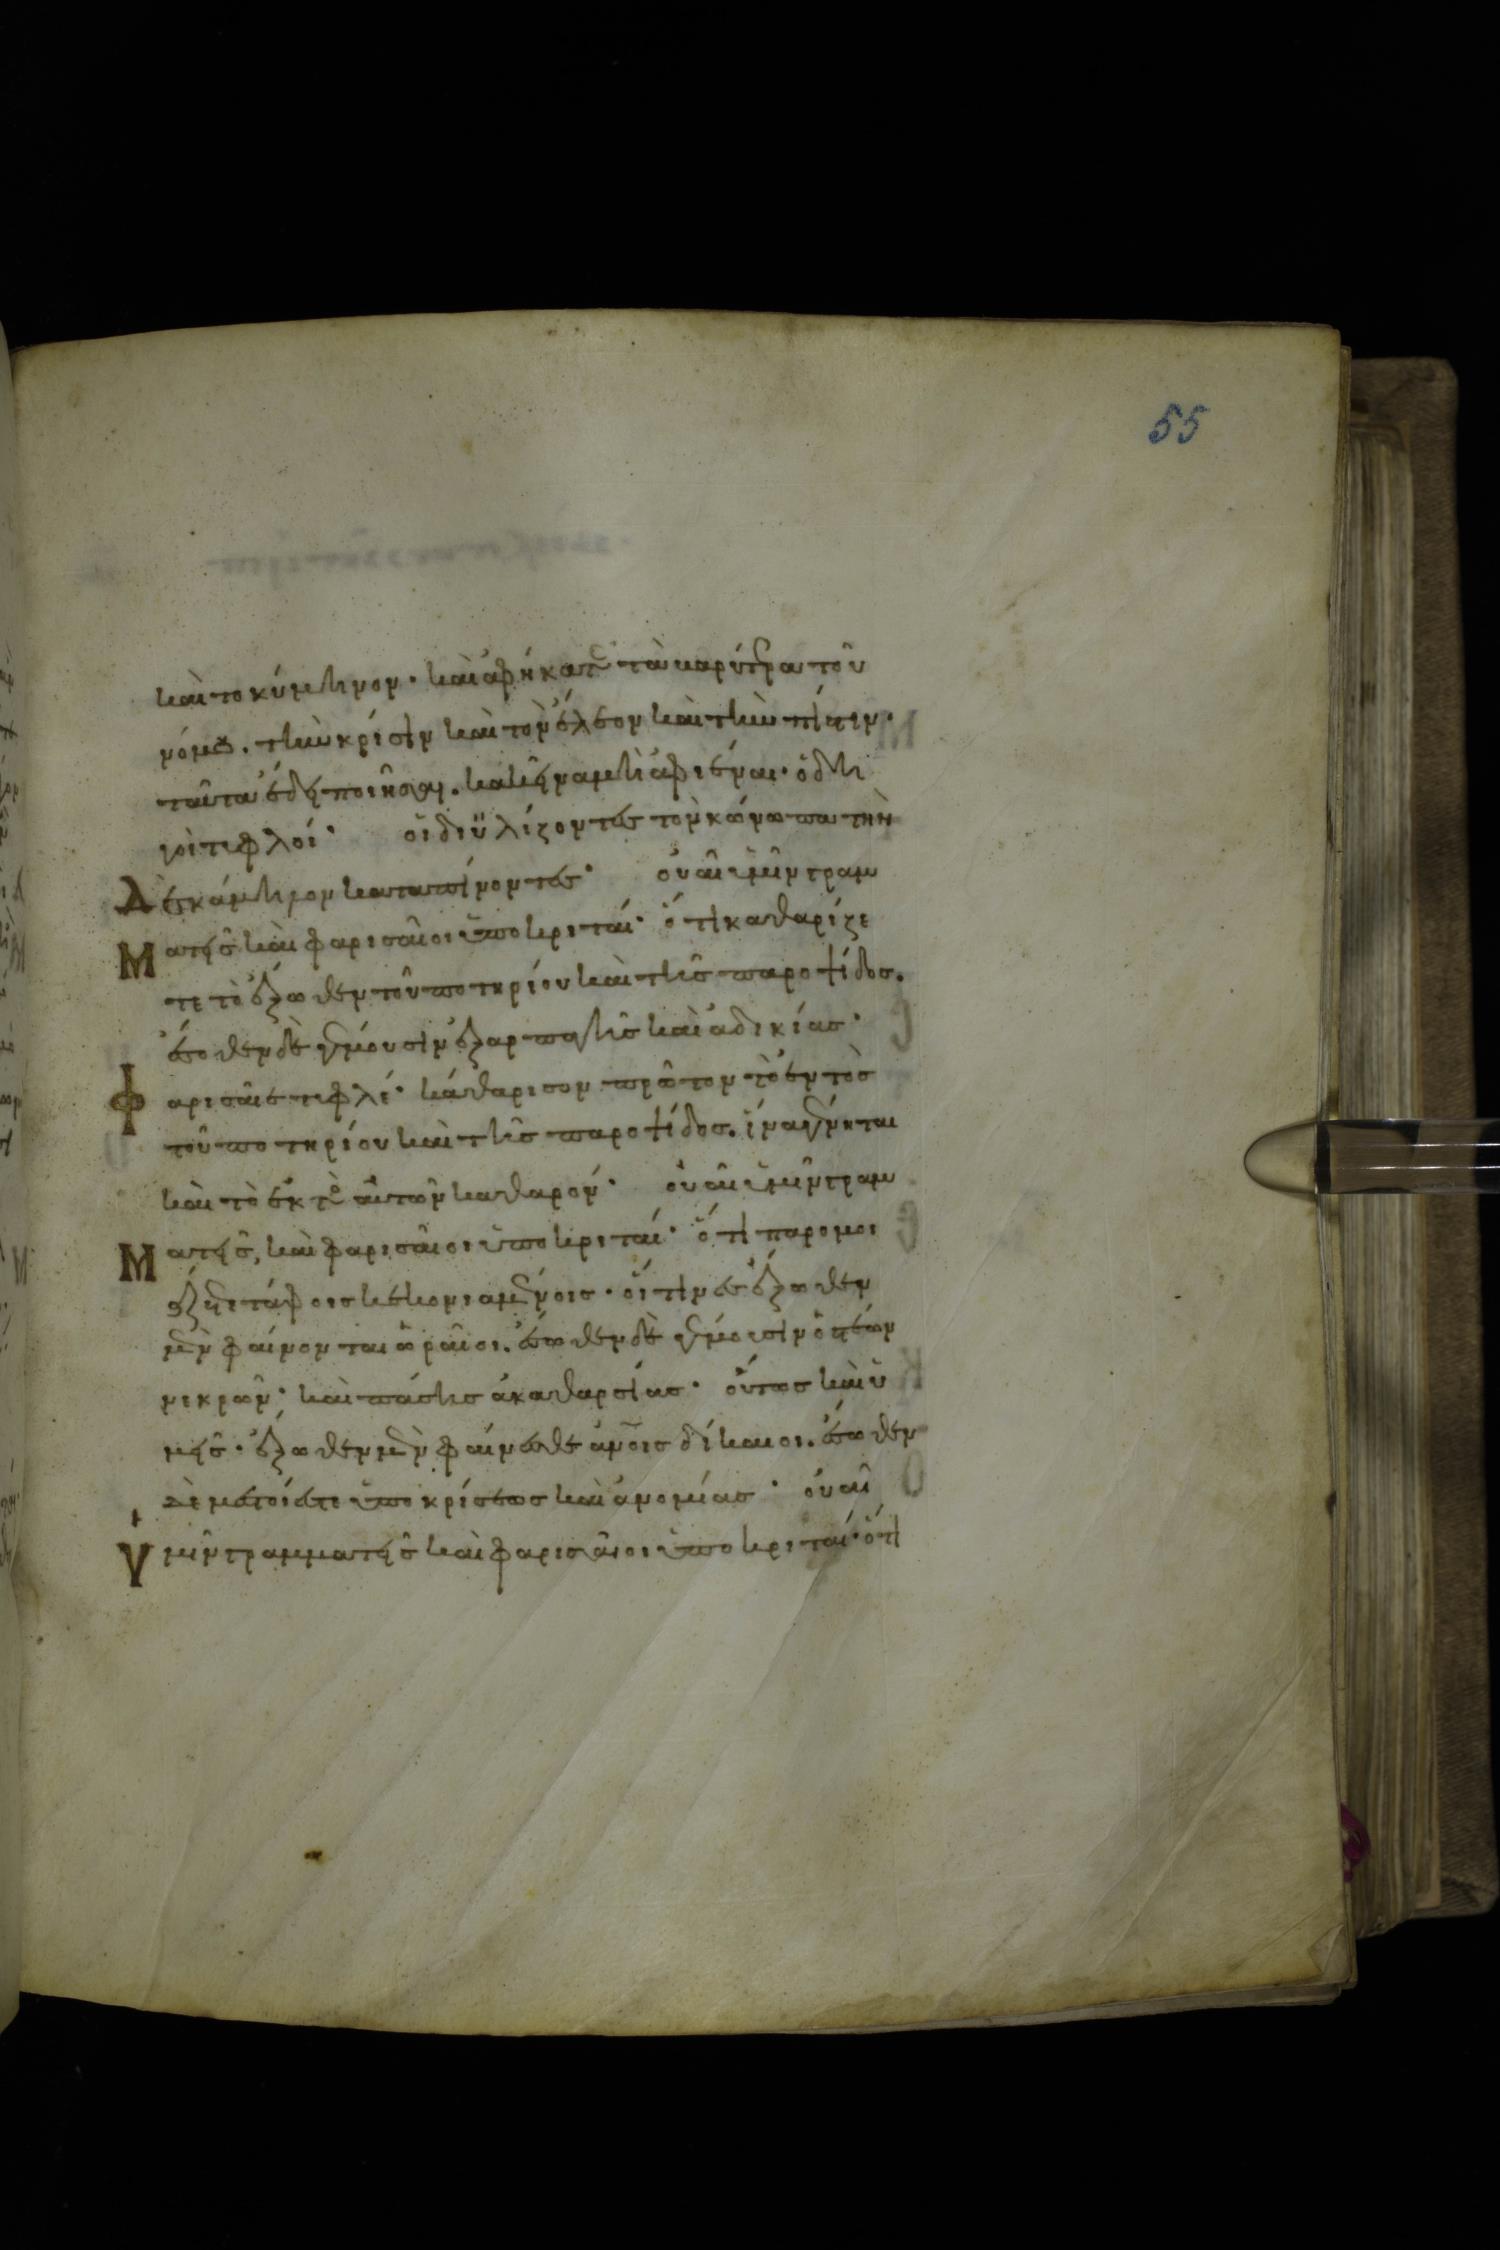 55
καὶ τὸ κύμηνον· καὶ ἀφήκατε τὰ βαρύτερα τοῦ
νόμου. τὴν κρίσιν καὶ τὸν ἔλεον καὶ τὴν πίστιν.
ταῦτα ἔδει ποιῆσαι. κακεῖνα μὴ ἀφιέναι· ὁδη
γοὶ τυφλοί· οἱ διϋλίζοντες τὸν κώνωπα τὴν
Δὲ κάμηλον καταπίνοντες· οὐαὶ ὑμῖν γραμ
Ματεῖς καὶ φαρισαῖοι ὑποκριταί· ὅτι καθαρίζε
τε τὸ ἔξωθεν τοῦ ποτηρίου καὶ τῆς παροψίδος.
ἔσωθεν δὲ γέμουσιν ἐξ ἁρπαγῆς καὶ ἀδικίας·
Φαρισαῖε τυφλέ· καθάρισον πρῶτον τὸ ἐντὸς
τοῦ ποτηρίου καὶ τῆς παροψίδος. ἵνα γένηται
καὶ τὸ ἐκτὸς αὐτῶν καθαρόν· οὐαὶ ὑμῖν γραμ
Ματεῖς, καὶ φαρισαῖοι ὑποκριταί· ὅτι παρομοι
άζετε τάφοις κεκονιαμένοις· οἵτινες ἔξωθεν
μὲν φαίνονται ὡραῖοι. ἔσωθεν δὲ γέμουσιν ὀστέων
νεκρῶν· καὶ πάσης ἀκαθαρσίας· οὕτως καὶ ὑ
μεῖς· ἔξωθεν μὲν φαίνεσθε ἀνοις δίκαιοι. ἔσωθεν
δὲ μεστοί ἐστε ὑποκρίσεως καὶ ἀνομίας· οὐαὶ
Ὑμῖν γραμματεῖς καὶ φαρισαῖοι ὑποκριταί· ὅτι